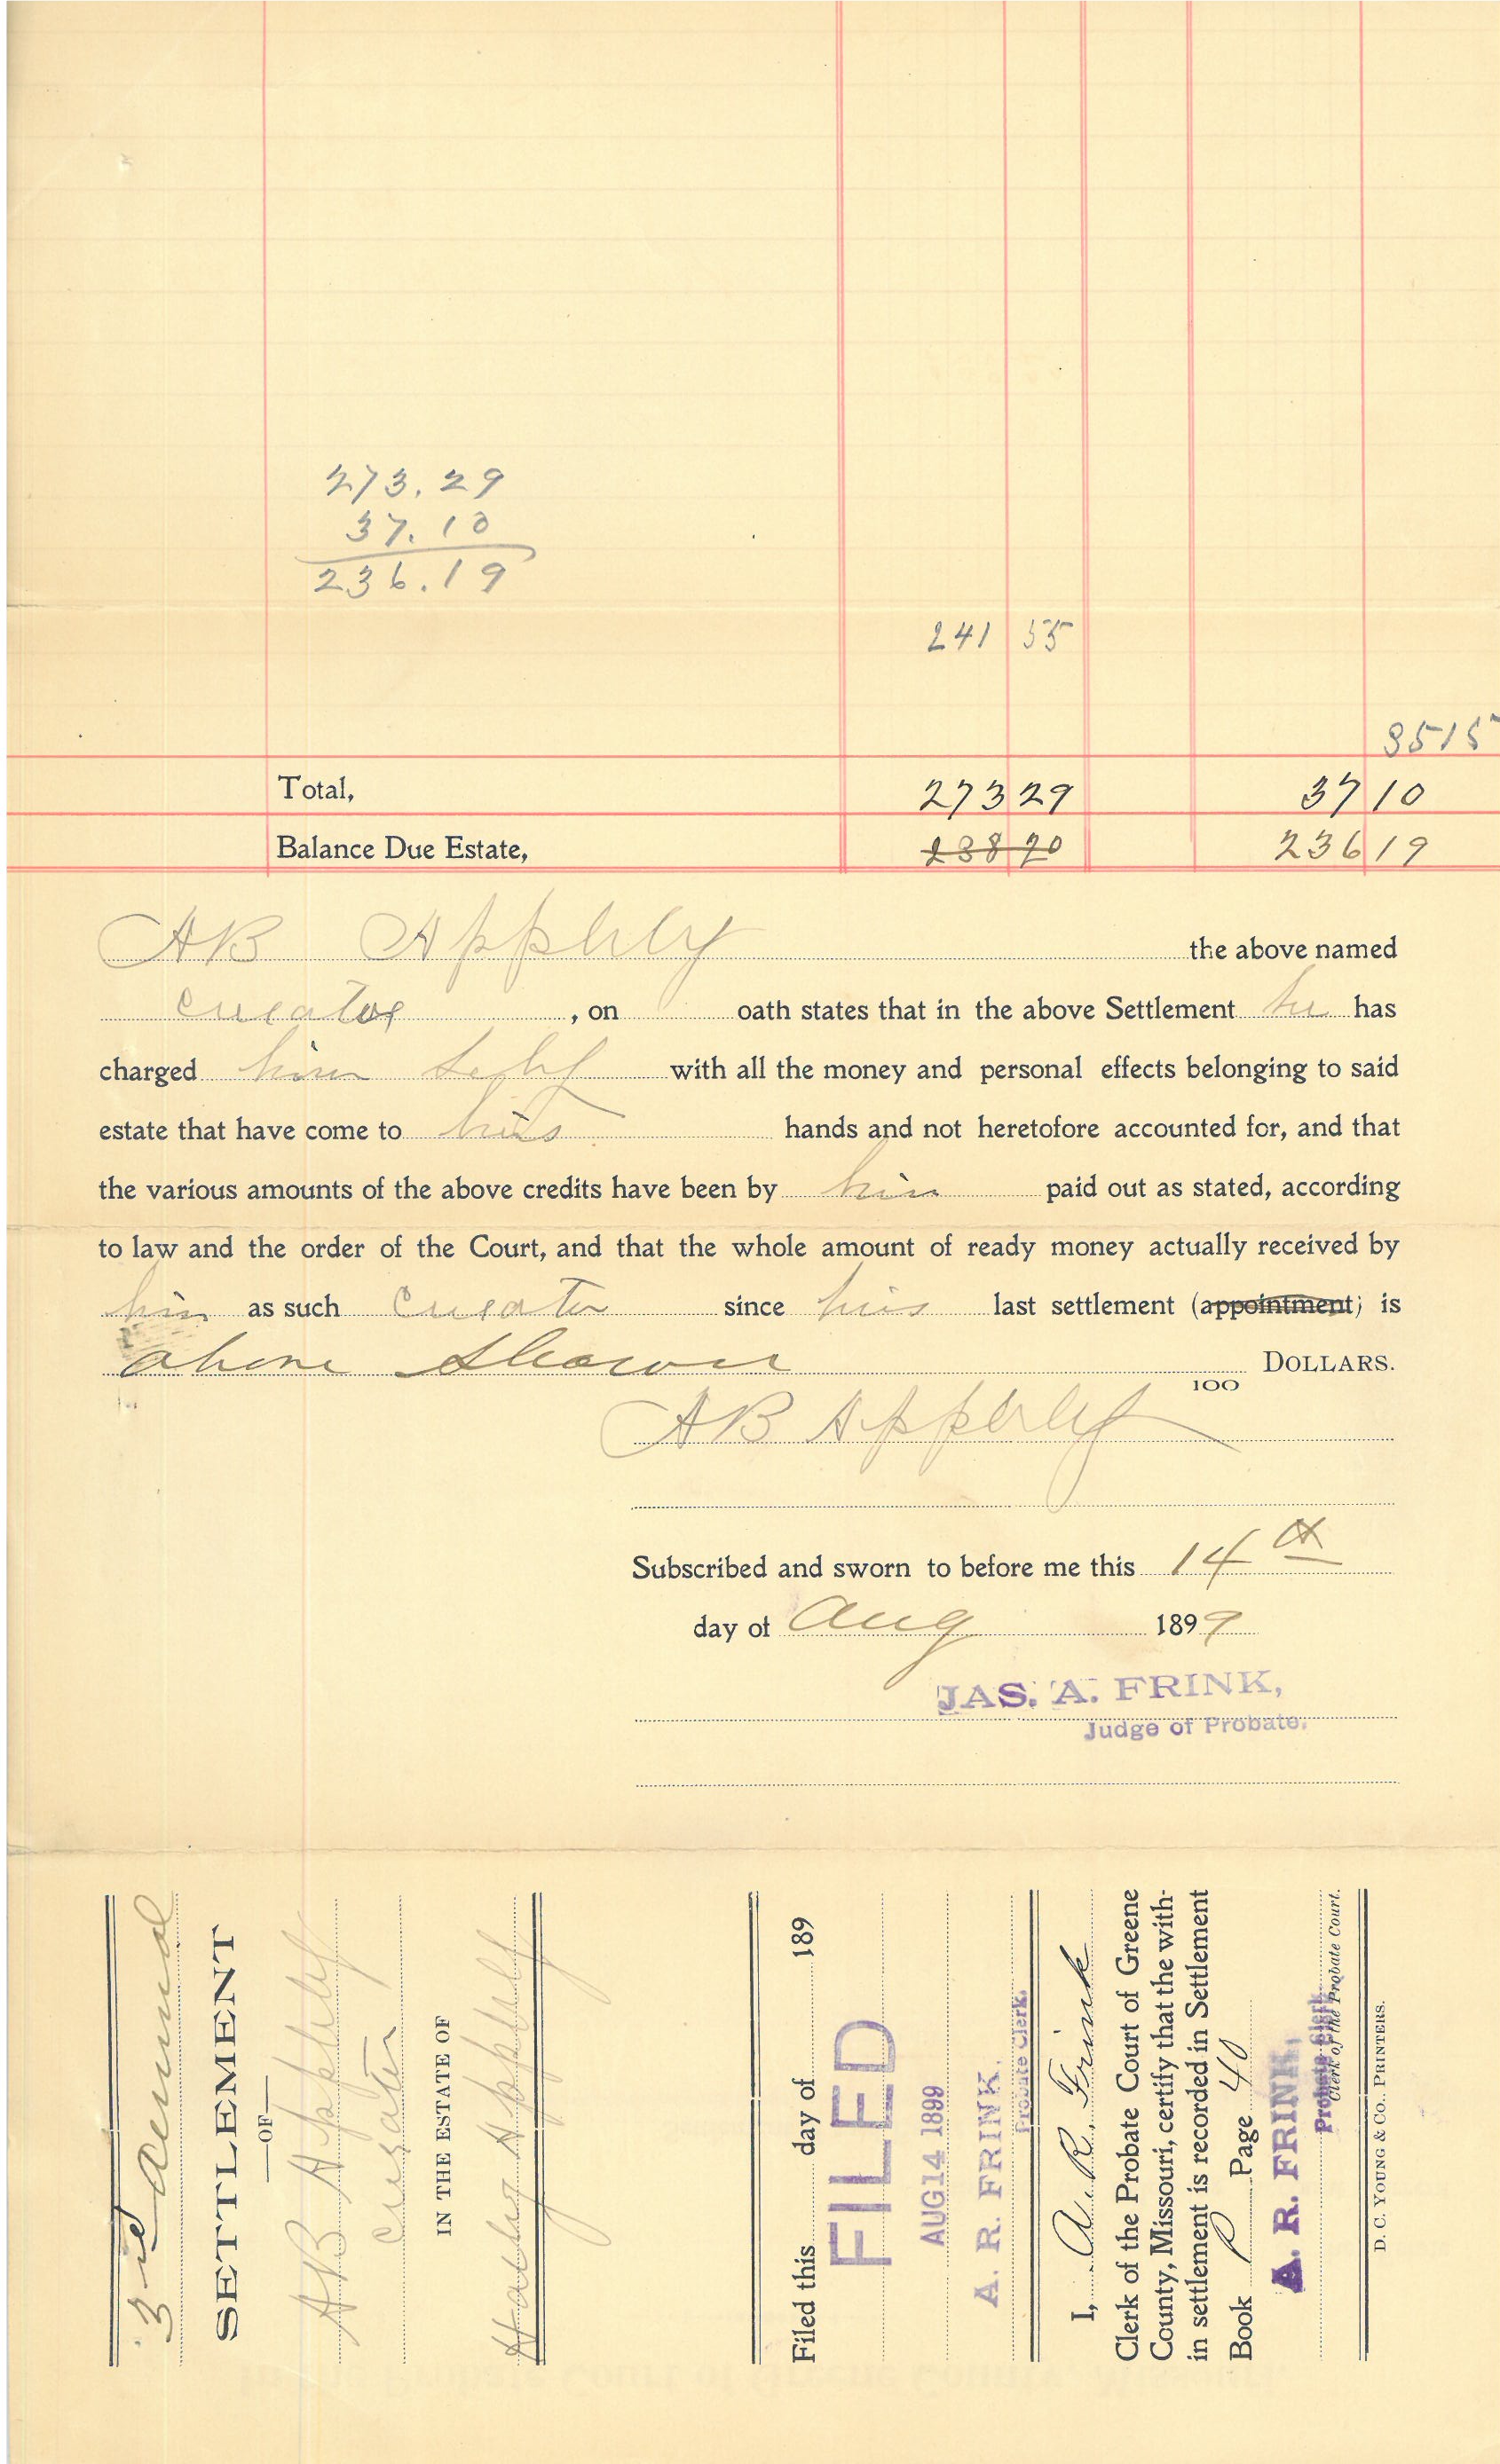 273.29
37.10
236.19
241 55
3515
Total, 273 29 37 10
Balance Due Estate, 238 20 236 19
AB Appleby the above named
curator, on oath states that in the above Settlement he has
charged him self with all the money and personal effects belonging to said
estate that have come to his hands and not heretofore accounted for, and that
the various amounts of the above credits have been by him paid out as stated, according
to law and the order of the Court, and that the whole amount of ready money actually received by
him as such Curator since his last settlement (appointment) is
above shown DOLLARS.
100
AB Appleby
Subscribed and sworn to before me this 14th
day of Aug 1899
JAS. A. FRINK,
Judge of Probate.
3rd Annual
SETTLEMENT
—OF—
AB Appleby
Curator
IN THE ESTATE OF
Appleby
Filed this day of 189
FILED
AUG 14 1899
A. R. FRINK.
Probate Clerk.
I, A. R. Frink
Clerk of the Probate Court of Greene
County, Missouri, certify that the with-
in settlement is recorded in Settlement
Book P Page 40
A. R. FRINK,
Probate Clerk.
Clerk of the Probate Court.
D. C. YOUNG & CO., PRINTERS.